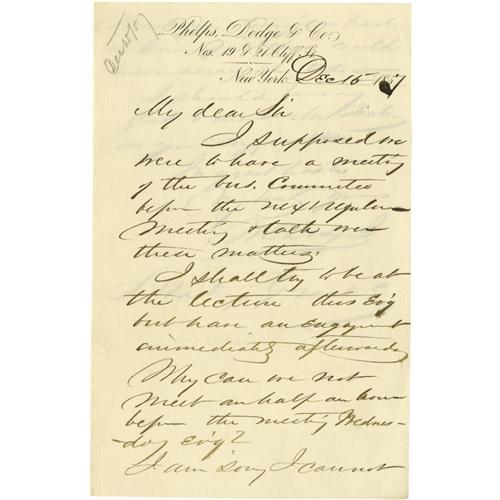 Dec 15/5
Phelps, Dodge & Co.
Nos. 19 & 21 Cliff St.
New York Dec 15 1857
My dear Sir
I supposed we
were to have a meeting
of the bus. Committee
before the next regular
meeting & talk over
these matters.
I shall try to be at
the lecture this Ev'g
but have an engagement
immediately afterwards
Why can we not
meet an half an hour
before the meeting Wednes-
-day Ev'g?
I am sorry I cannot